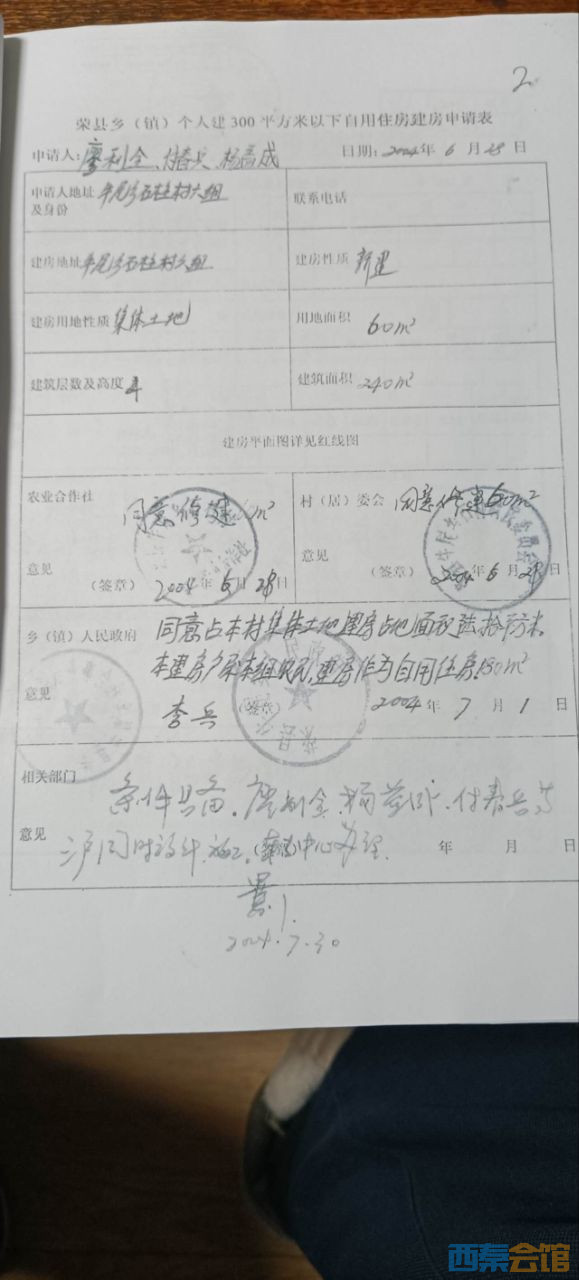 2
荣县乡（镇）个人建300平方米以下自用住房建房申请表
申请人：廖利全、付春兵、杨 成 日期：2004年6月28日
申请人地址及身份 石柱村六组 联系电话
建房地址 石柱村六组 建房性质 新建
建房用地性质 集体土地 用地面积 60m²
建筑层数及高度 4 建筑面积 240m²
建房平面图详见红线图
农业合作社 同意修建 m² 村（居）委会 同意修建60m²
意见 意见
（签章）2004年6月28日 （签章）2004年6月28日
乡（镇）人民政府 同意占本村集体土地建房占地面积陆拾平方米。
本建房户系本组农民，建房作为自用住房180m²
意见 李兵 （签章） 2004年7月1日
相关部门 条件具备。廖利全、杨 、付春兵等
意见 三户同时设计、施工。 中心办理 年 月 日
2004.7.30
西秦会馆